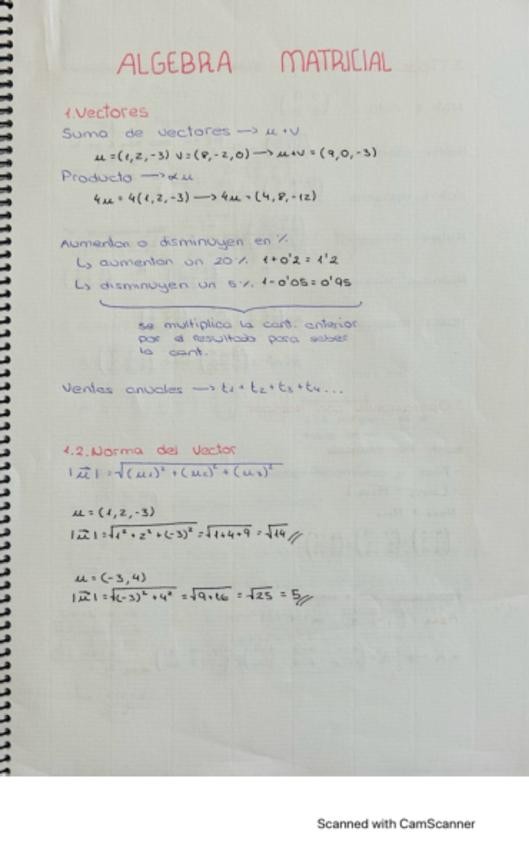 ALGEBRA MATRICIAL
1. Vectores
Suma de vectores → u+v
u=(1,2,-3) v=(8,-2,0) → u+v=(9,0,-3)
Producto → αu
4u=4(1,2,-3) → 4u=(4,8,-12)
Aumentan o disminuyen en %
↳ aumentan un 20% 1+0'2=1'2
↳ disminuyen un 5% 1-0'05=0'95
se multiplica la cant. anterior
por el resultado para saber
la cant.
Ventas anuales → t₁+t₂+t₃+t₄...
1.2. Norma del vector
|u⃗|=√(u₁)²+(u₂)²+(u₃)²
u=(1,2,-3)
|u⃗|=√1²+2²+(-3)²=√1+4+9=√14//
u=(-3,4)
|u⃗|=√(-3)²+4²=√9+16=√25=5//
Scanned with CamScanner